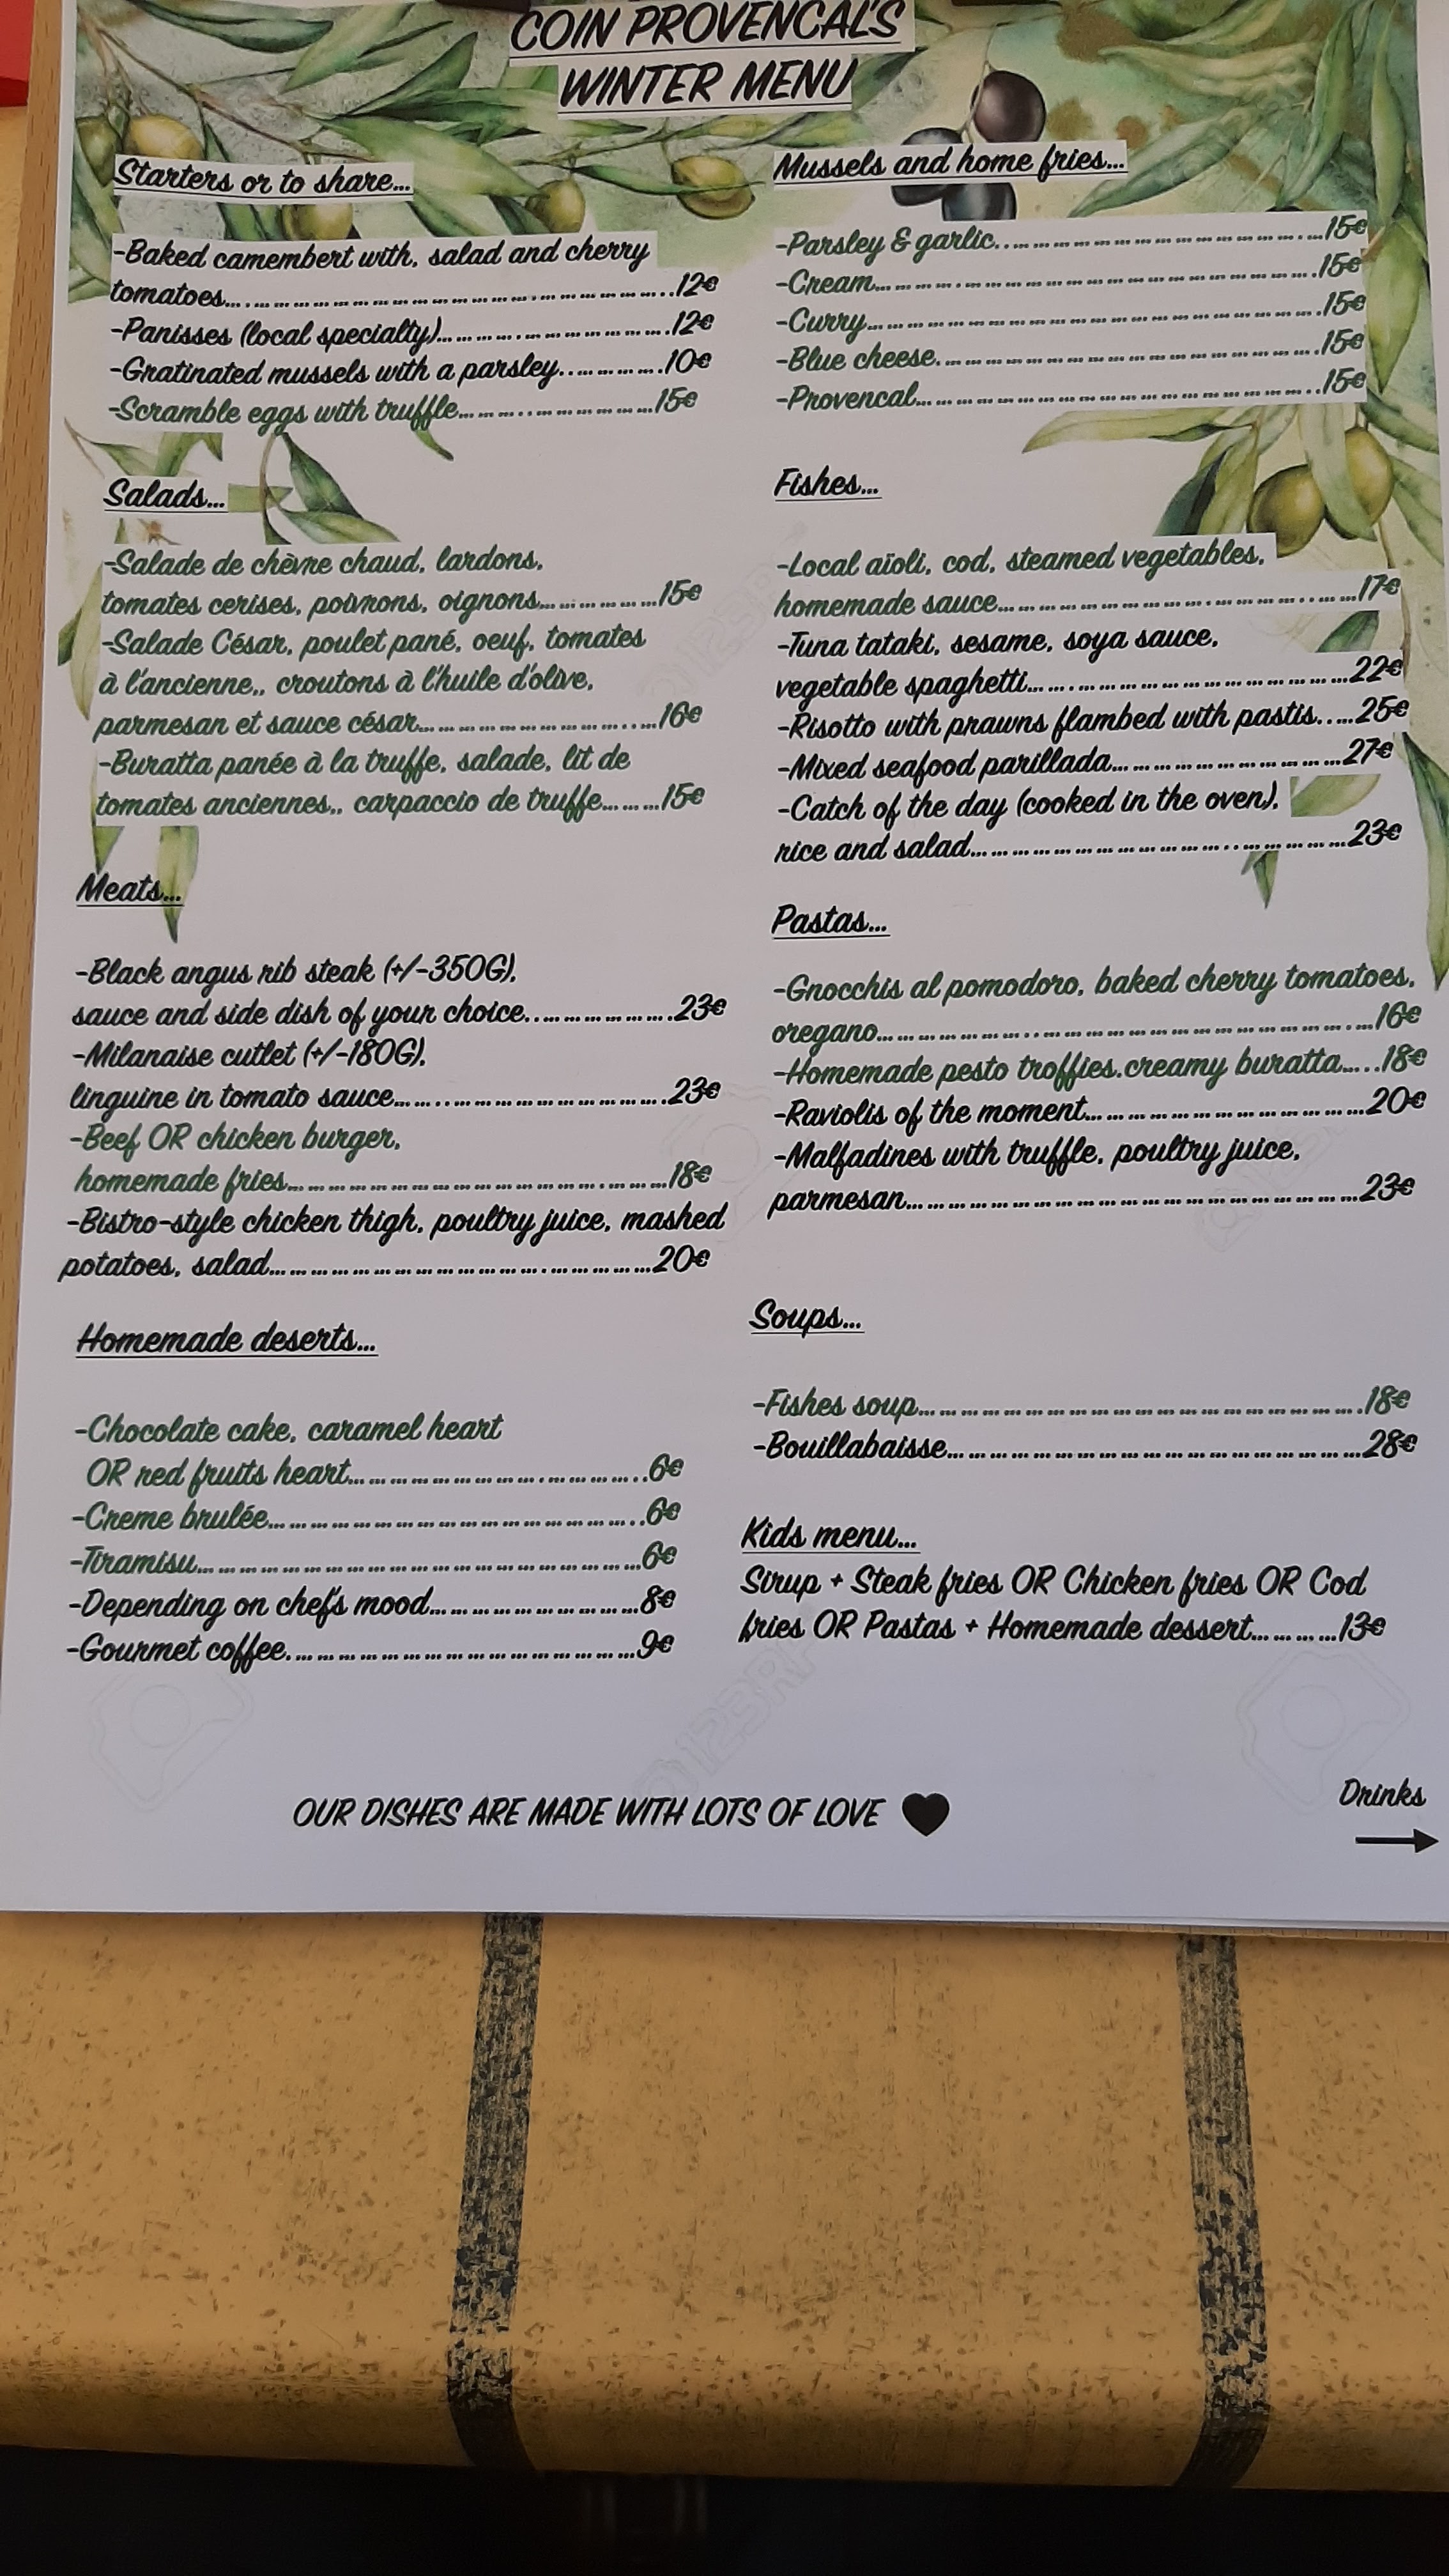 COIN PROVENCAL'S
WINTER MENU
Starters or to share...
-Baked camembert with, salad and cherry
tomatoes...12€
-Panisses (local specialty)...12€
-Gratinated mussels with a parsley...10€
-Scramble eggs with truffle...15€
Salads...
-Salade de chèvre chaud, lardons,
tomates cerises, poivrons, oignons...15€
-Salade César, poulet pané, oeuf, tomates
à l'ancienne,, croutons à l'huile d'olive,
parmesan et sauce césar...16€
-Buratta panée à la truffe, salade, lit de
tomates anciennes,, carpaccio de truffe...15€
Meats...
-Black angus rib steak (+/-350G),
sauce and side dish of your choice...23€
-Milanaise cutlet (+/-180G),
linguine in tomato sauce...23€
-Beef OR chicken burger,
homemade fries...18€
-Bistro-style chicken thigh, poultry juice, mashed
potatoes, salad...20€
Homemade deserts...
-Chocolate cake, caramel heart
OR red fruits heart...6€
-Creme brulée...6€
-Tiramisu...6€
-Depending on chef's mood...8€
-Gourmet coffee...9€
Mussels and home fries...
-Parsley & garlic...15€
-Cream...15€
-Curry...15€
-Blue cheese...15€
-Provencal...15€
Fishes...
-Local aïoli, cod, steamed vegetables,
homemade sauce...17€
-Tuna tataki, sesame, soya sauce,
vegetable spaghetti...22€
-Risotto with prawns flambed with pastis...25€
-Mixed seafood parillada...27€
-Catch of the day (cooked in the oven),
rice and salad...23€
Pastas...
-Gnocchis al pomodoro, baked cherry tomatoes,
oregano...16€
-Homemade pesto troffies,creamy buratta...18€
-Raviolis of the moment...20€
-Malfadines with truffle, poultry juice,
parmesan...23€
Soups...
-Fishes soup...18€
-Bouillabaisse...28€
Kids menu...
Sirup + Steak fries OR Chicken fries OR Cod
fries OR Pastas + Homemade dessert...13€
OUR DISHES ARE MADE WITH LOTS OF LOVE
Drinks